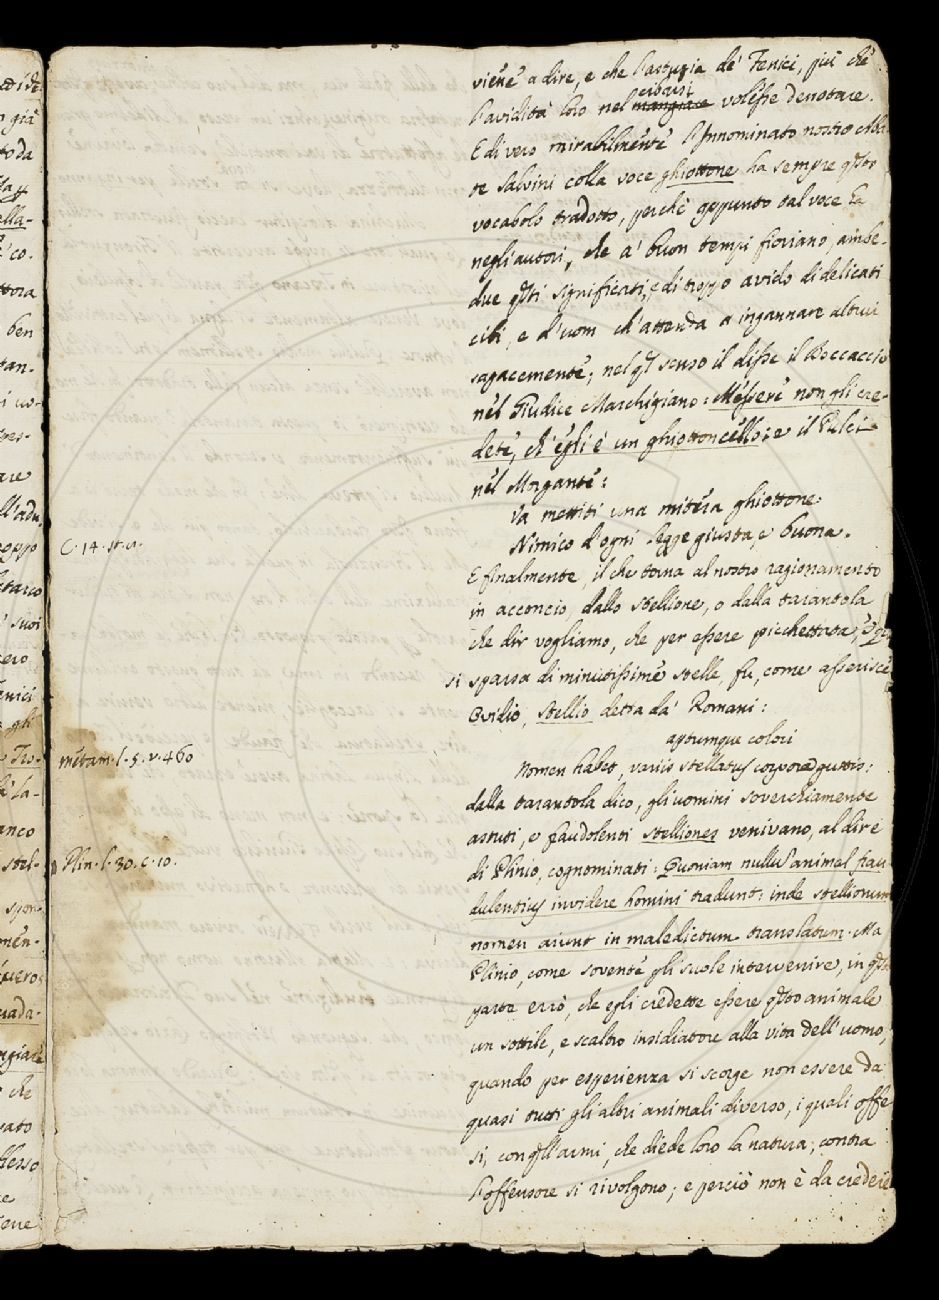 viene a dire, e che l'astuzia de' Fenici, più che
cibarsi
l'avidità loro nel mangiare volesse denotare.
E di vero mirabilmente l'Innominato nostro Aba-
te Salvini colla voce ghiottone ha sempre qsto
vocabolo tradotto, perchè appunto tal voce ha
negli autori, che a' buon tempi fiorirano, ambe-
due qsti significati, e di troppo avido di delicati
cibi, e d'uom ch'attenda a ingannare altrui
sagacemente; nel ql senso il disse il Boccaccio
nel Giudice Marchigiano: Messere non gli cre-
dete, ch'egli è un ghiottoncello: e il Pulci
nel Morgante:
C. 14. st. 
Va mettiti una mitera ghiottone
Nimico d'ogni legge giusta, e buona.
E finalmente, il che torna al nostro ragionamento
in acconcio, dallo stellione, o dalla tarantola
che dir vogliamo, che per essere picchettata, e qua
si sparsa di minutissime stelle, fu, come asserisce
Ovidio, stellio detta da' Romani:
aptumque colori
metam. l. 5. v. 460
Nomen habet, variis stellatus corpora guttis:
dalla tarantola dico, gli uomini soverchiamente
astuti, e fraudolenti stelliones venivano, al dire
Plin. l. 30. c. 10.
di Plinio, cognominati: Quoniam nullus animal frau
dulentius invidere homini tradunt: inde stellionum
nomen aiunt in maledictum translatum. Ma
Plinio, come sovente gli suole intervenire, in qsta
parte errò, che egli credette essere qsto animale
un sottile, e scaltro insidiatore alla vita dell'uomo,
quando per esperienza si scorge non essere da
quasi tutti gli altri animali diverso, i quali offe
si, con qll'armi, che diede loro la natura, contra
l'offensore si rivolgono; e perciò non è da credere